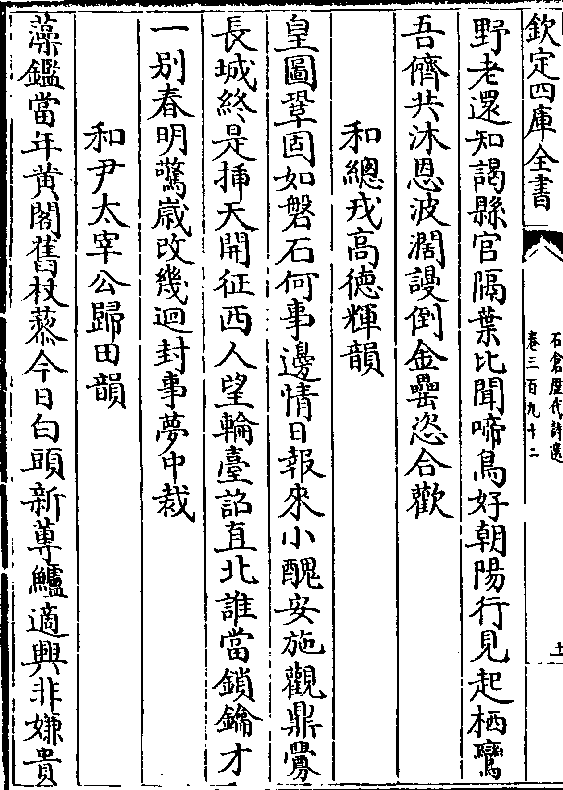 欽定四庫全書
石倉歷代詩選
卷三百九十二
十
野老還知謁縣官隔葉比聞啼鳥好朝陽行見起栖鸞
吾儕共沐恩波濶謾倒金罍恣合歡
和總戎高德輝韻
皇圖鞏固如磐石何事邊情日報來小醜安施觀鼎釁
長城終是挿天開征西人望輪臺詔直北誰當鎖鑰才
一別春明驚嵗改幾迴封事夢中裁
和尹太宰公歸田韻
藻鑑當年黄閣舊杖藜今日白頭新蓴鱸適興非嫌貴